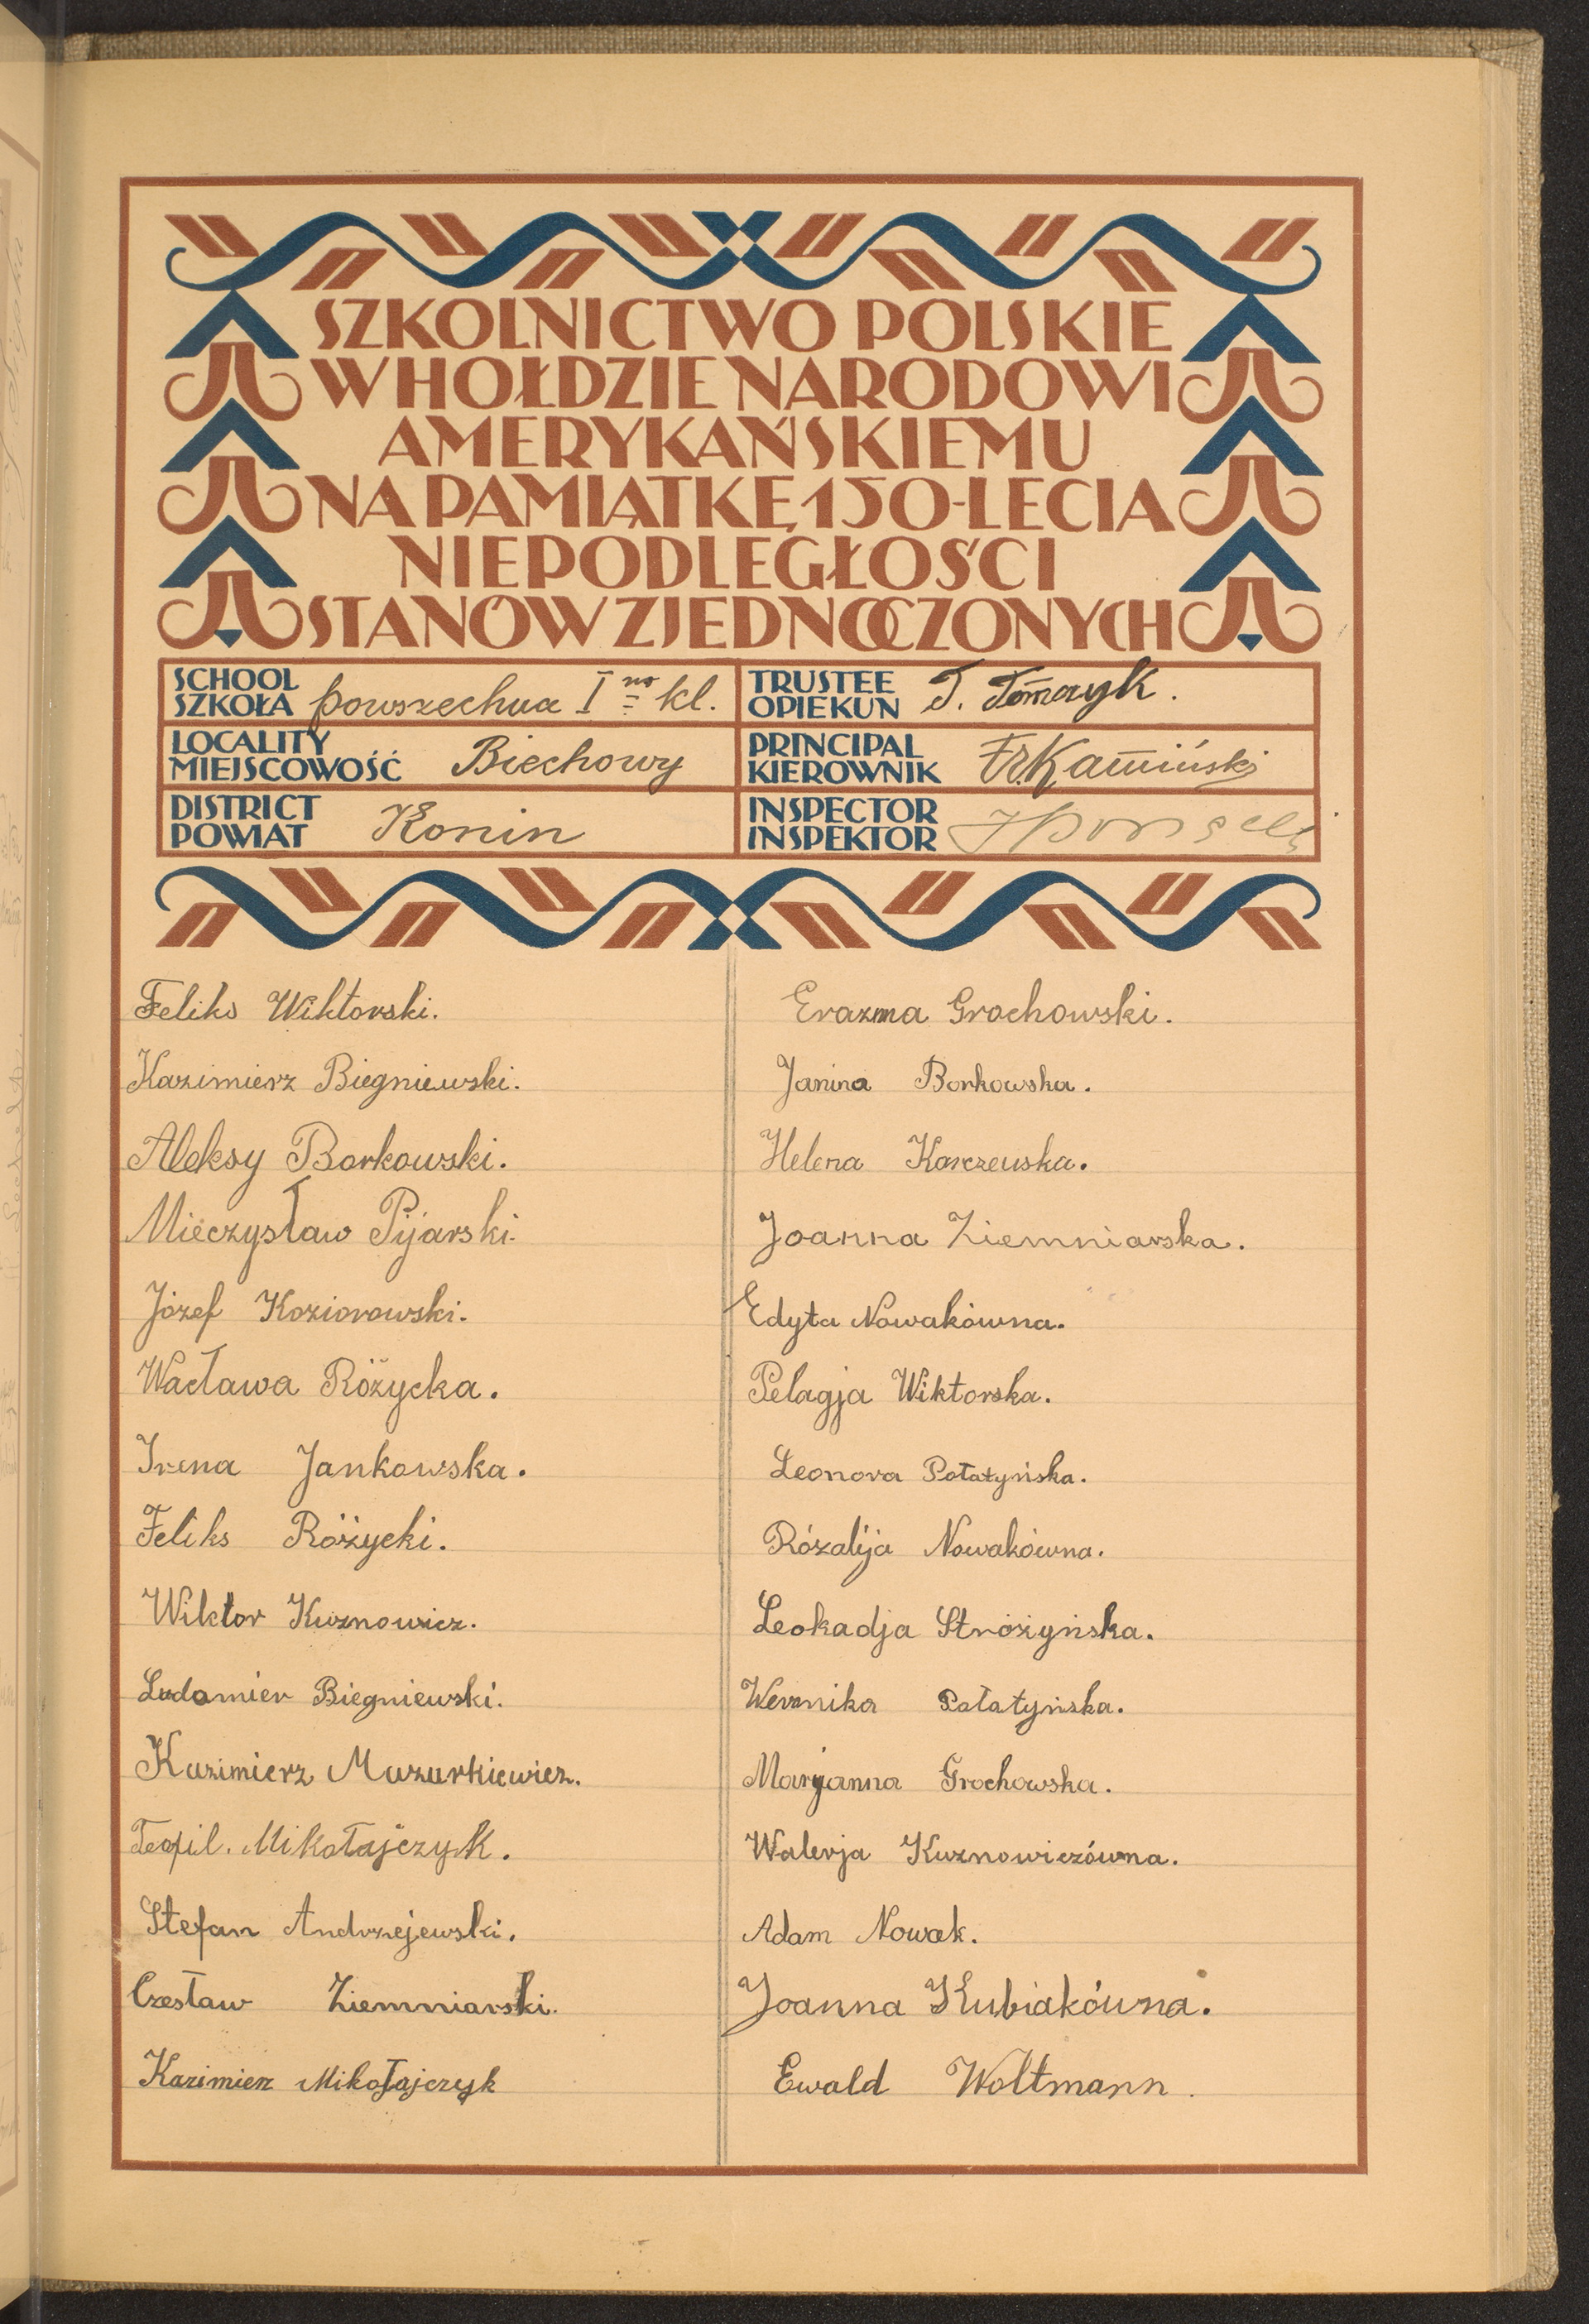 SZKOLNICTWO POLSKIE
W HOŁDZIE NARODOWI
AMERYKAŃSKIEMU
NA PAMIĄTKĘ 150-LECIA
NIEPODLEGŁOŚCI
STANÓW ZJEDNOCZONYCH
SCHOOL
SZKOŁA powszechna I no kl.
TRUSTEE
OPIEKUN T. Tomczyk.
LOCALITY
MIEJSCOWOŚĆ Biechowy
PRINCIPAL
KIEROWNIK Fr. Kamiński
DISTRICT
POWIAT Konin
INSPECTOR
INSPEKTOR
Feliks Wiktorski.
Kazimierz Biegniewski.
Aleksy Borkowski.
Mieczysław Pijarski.
Józef Koziorowski.
Wacława Różycka.
Irena Jankowska.
Feliks Różycki.
Wiktor Kuznowicz.
Ludomier Biegniewski.
Kazimierz Mazurkiewicz.
Teofil. Mikołajczyk.
Stefan Andrzejewski.
Czesław Ziemniarski.
Kazimierz Mikołajczyk
Erazma Grochowski.
Janina Borkowska.
Helena Karczewska.
Joanna Ziemniarska.
Edyta Nowakówna.
Pelagja Wiktorska.
Leonora Połatyńska.
Rózalija Nowakówna.
Leokadja Stróżyńska.
Weronika Połatyńska.
Maryjanna Grochowska.
Walerja Kuznowiczówna.
Adam Nowak.
Joanna Kubiakówna.
Ewald Woltmann.